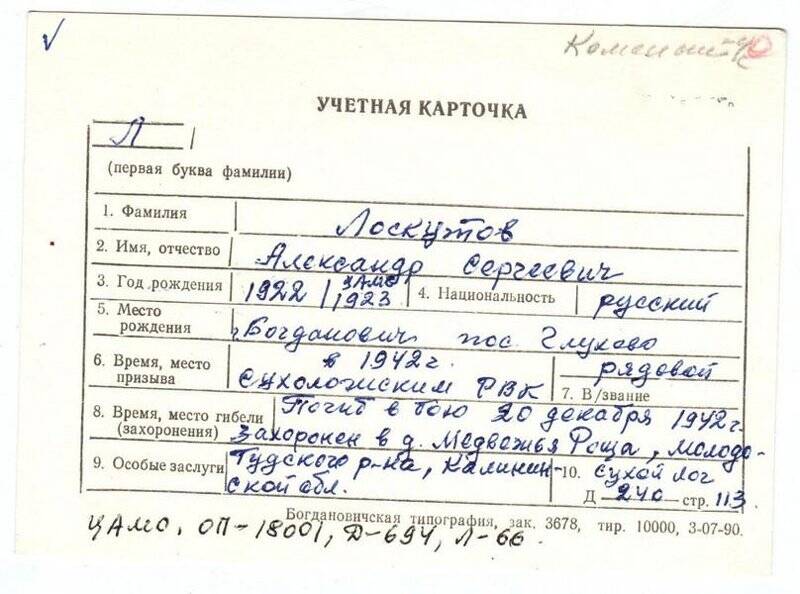 УЧЕТНАЯ КАРТОЧКА
Л
(первая буква фамилии)
1. Фамилия Лоскутов
2. Имя, отчество Александр Сергеевич
3. Год рождения 1922 / ЦАМО 1923 4. Национальность русский
5. Место рождения г. Богданович пос. Глухово
6. Время, место призыва в 1942 г. Сухоложским РВК
7. В/звание рядовой
8. Время, место гибели (захоронения) Погиб в бою 20 декабря 1942 г.
Захоронен в д. Медвежья Роща, Молодо-
Тудского р-на, Калинин-
ской обл.
9. Особые заслуги
10. Сухой Лог
Д 240 стр. 113
Богдановичская типография, зак. 3678, тир. 10000, 3-07-90.
ЦАМО, ОП-18001, Д-694, Л-66.